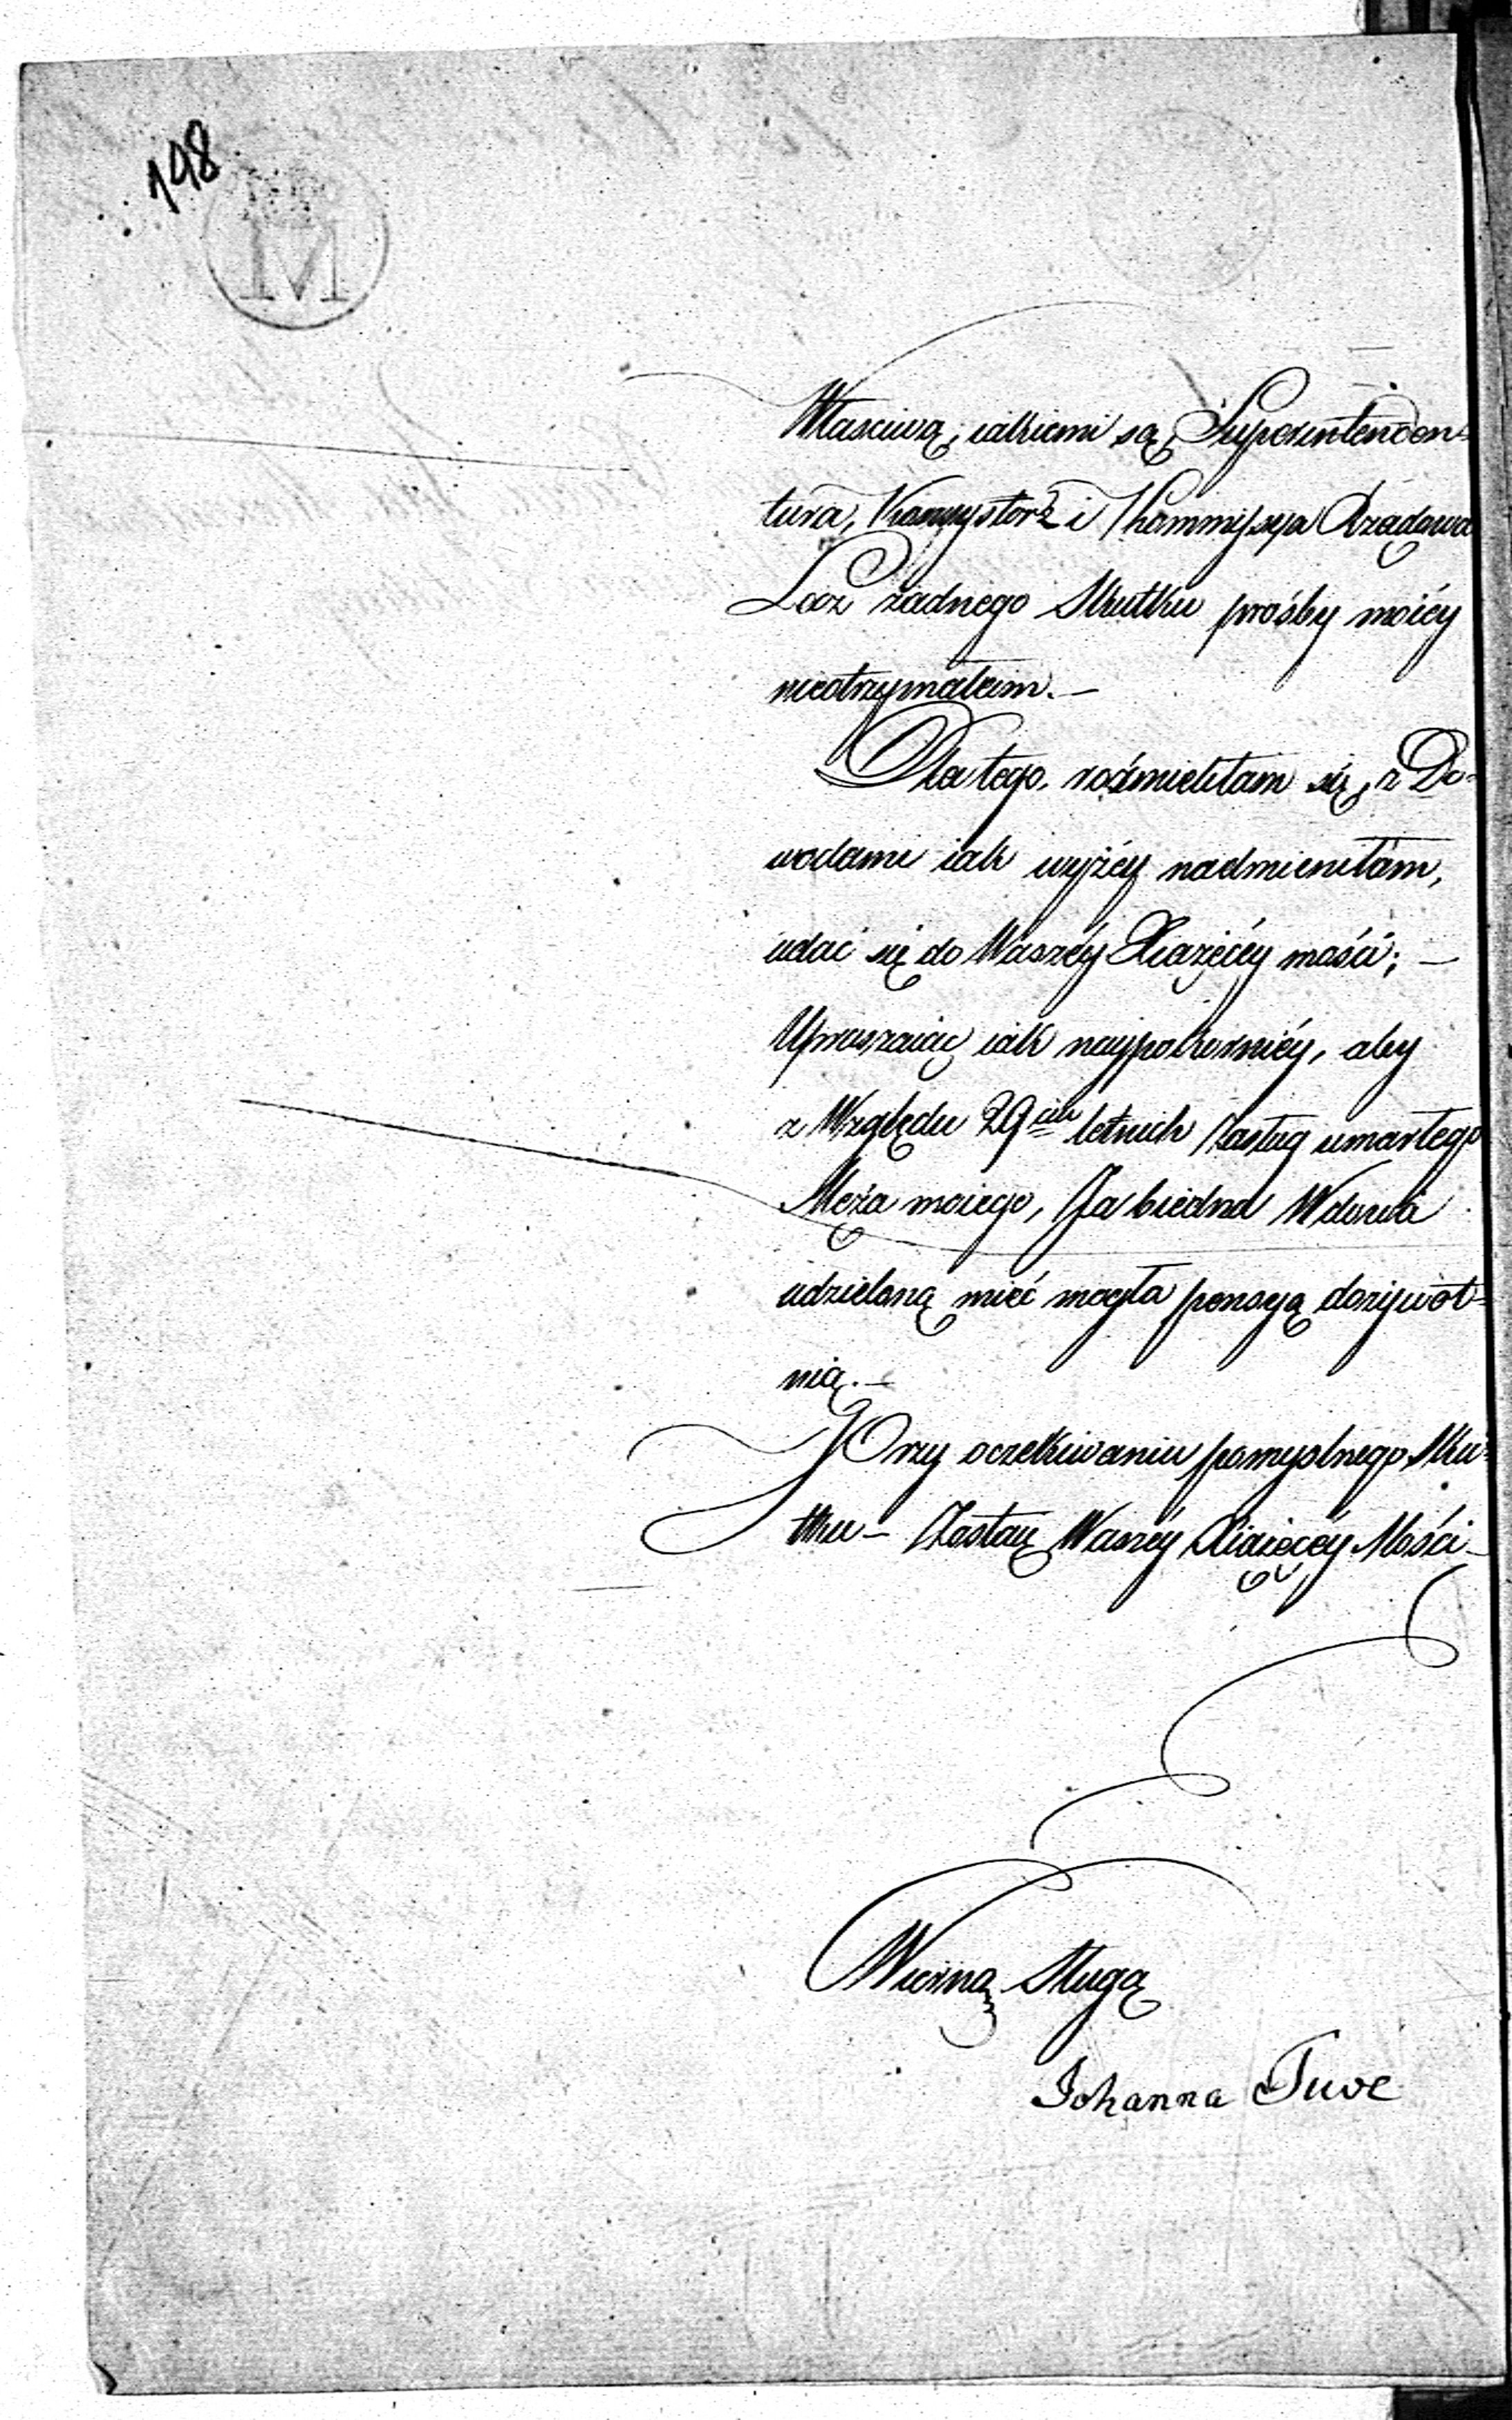 198
M
Własciwą, iakiemi są, Superintenden=
tura, Konsystorz i Kommissya Rządowa
Lecz żadnego Skutku prośby moiéy
nieotrzymałem. —
Dla tego. rośmieliłam się, z Do=
wodami iak wyżéy nadmieniłam,
udać się do Waszéy Xiążęcéy mości; —
Upraszaiąc iak naypokorniéy, aby
z Względu 29ciu letnich Zasług umarłego
Męża moiego, Ja biedna Wdowa
udzieloną mieć mogła pensyą dożywot=
nią. —
Przy oczekiwaniu pomyslnego Sku=
tku — Zostaię Waszéy Xiążęcéy Mości —
Wierną Sługą
Johanna Tuve